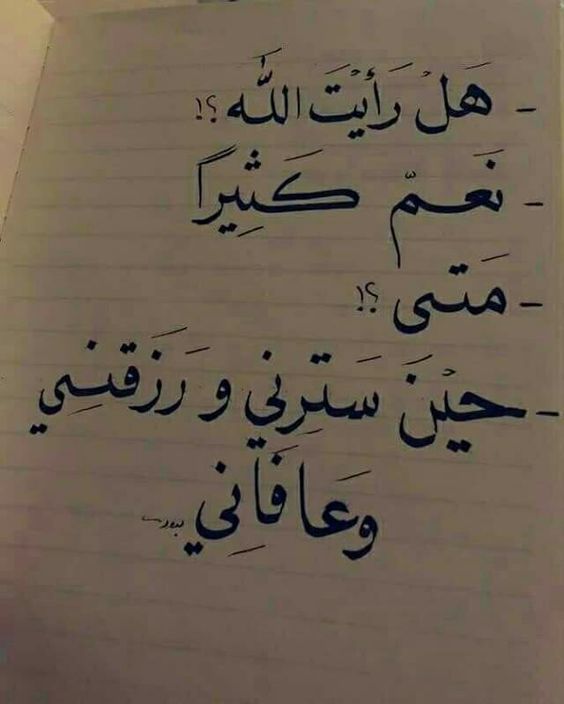 - هَلْ رَأَيْتَ اللَّه ؟!
- نَعَمّ كَثِيراً
- مَتَى ؟!
- حيْنَ سَتَرِنِي وَ رَزَقنِي
وَعَافَانِي